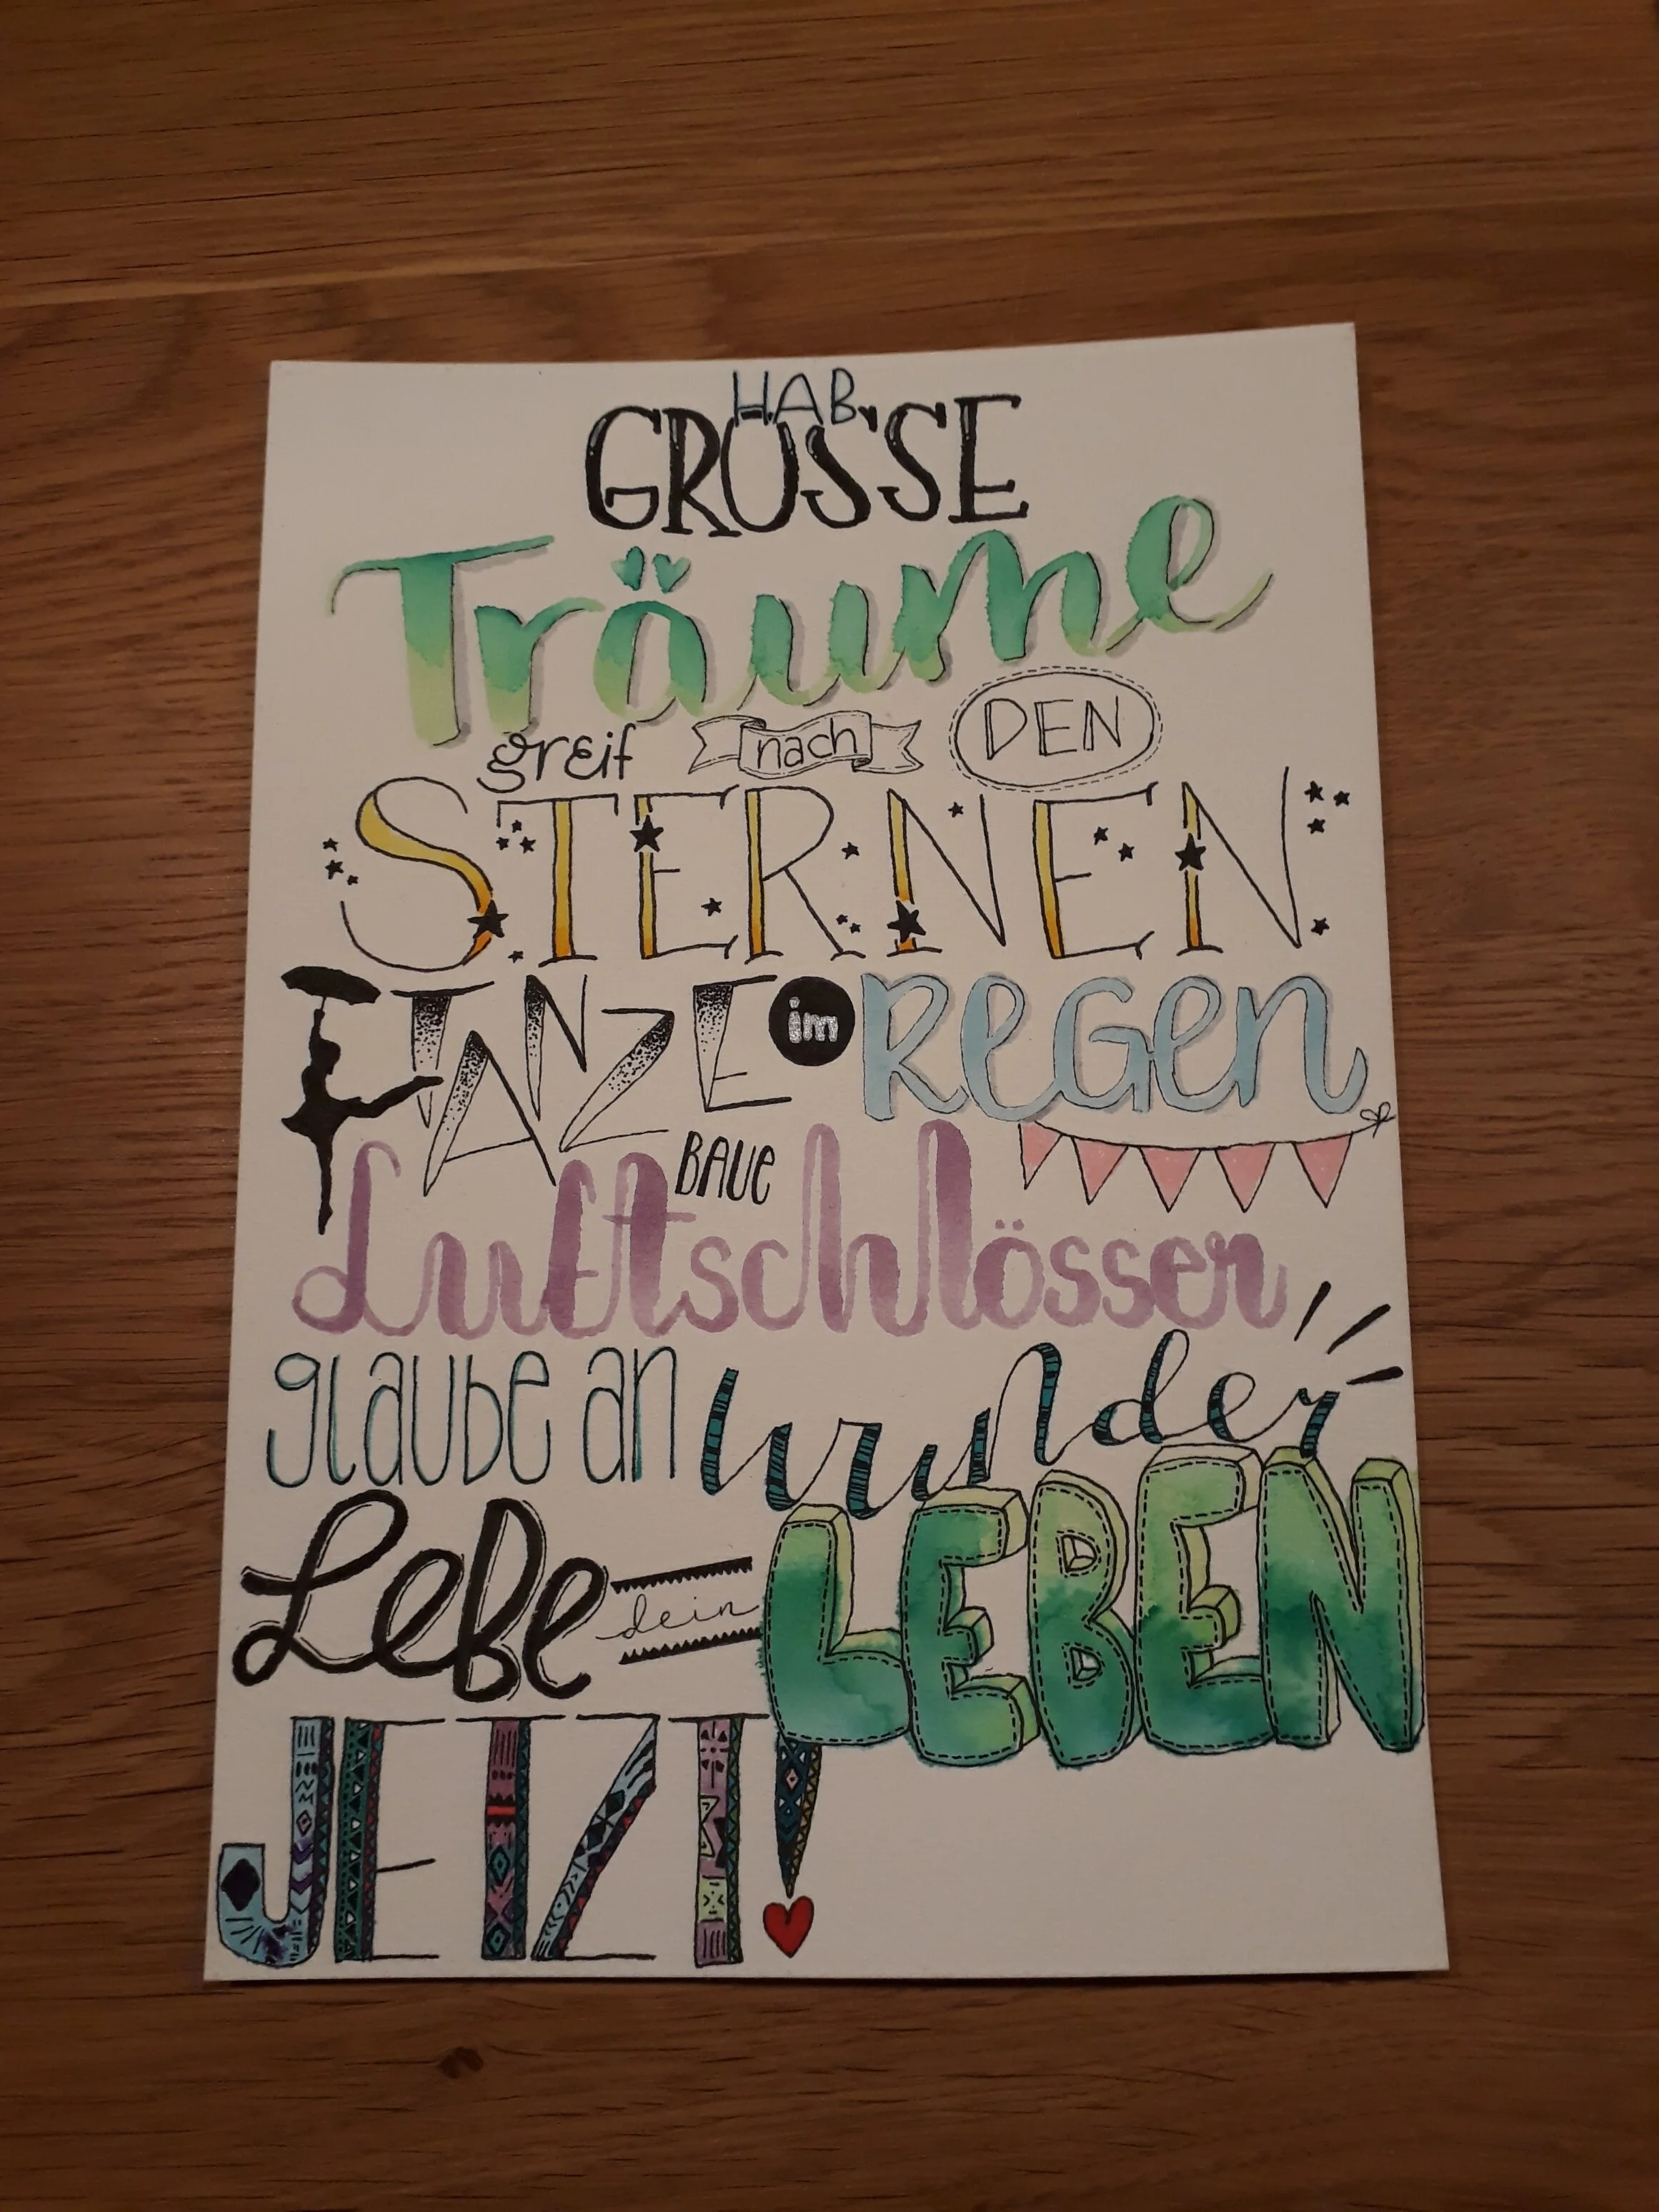 HAB
GROSSE
Träume
greif nach DEN
STERNEN
TANZE im REGEN
BAUE
Luftschlösser
glaube an wunder
Lebe dein LEBEN
JETZT!